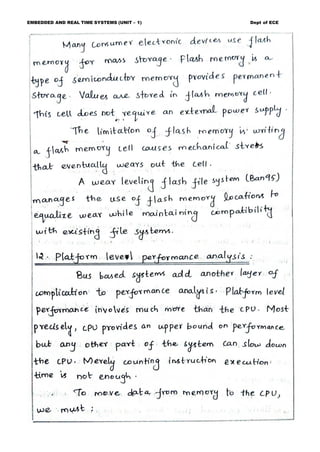 EMBEDDED AND REAL TIME SYSTEMS (UNIT – 1) Dept of ECE
Many Consumer electronic devices use flash
memory for mass storage. Flash memory is a
type of semiconductor memory provides permanent
Storage. Values are stored in flash memory cell.
This cell does not require an external power supply.
The limitation of flash memory is writing
a flash memory cell causes mechanical stress
that eventually wears out the cell.
A wear leveling flash file system (Ban95)
manages the use of flash memory locations to
equalize wear while maintaining compatibility
with existing file systems.
12. Platform level performance analysis :
Bus based systems add another layer of
complication to performance analysis. Platform level
performance involves much more than the CPU. Most
precisely, CPU provides an upper bound on performance
but any other part of the system can slow down
the CPU. Merely counting instruction execution
time is not enough.
To move data from memory to the CPU,
we must :